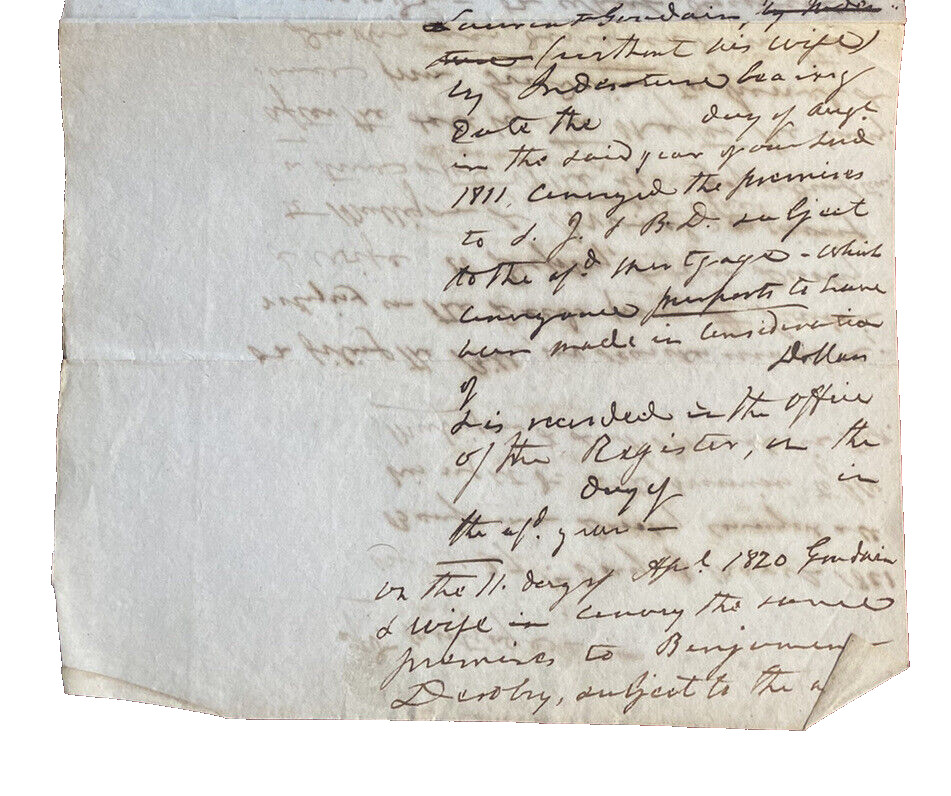 Laurent Goudain, by Inden
ture (without his wife)
by Indenture bearing
Date the day of Augt.
in the said year of our Lord
1811, conveyed the premises
to S. J. & B. D. subject
to the afd. mortgage - which
conveyance purports to have
been made in consideration
of Dollars
& is recorded in the office
of the Register, on the
day of in
the afd. year -
on the 11. day of Apl. 1820 Goudain
& wife convey the same
premises to Benjamin
Desobry, subject to the